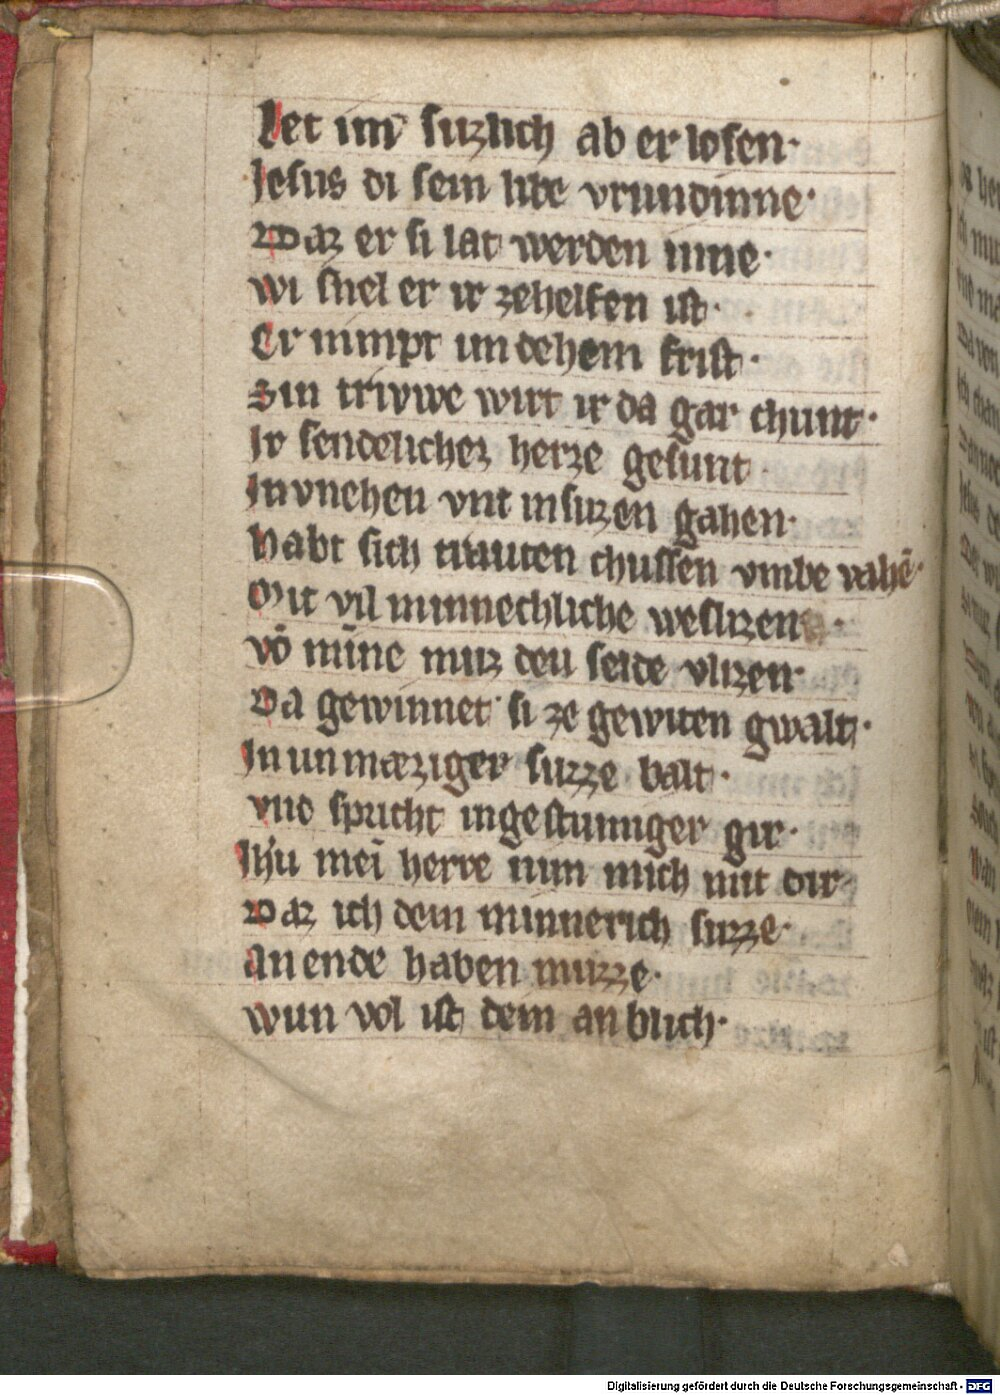 Let im suzlich ab er losen·
Jesus di sein libe vrundinne·
Daz er si lat werden inne·
wi snel er ir zehelfen ist·
Er nimpt un dehein frist·
Sin triwe wirt ir da gar chunt·
Ir sendelichez herze gesunt·
In vnehen vnt insuzen gahen·
habt sich trauten chussen vmbe vahē·
Mit vil minnechliche
vō mīne muz deu seide vlizen·
Da gewinnet si ze gewiten gwalt·
In un mæziger suzze balt·
vnd spricht ingestumiger gir·
Jhu mei herre nim mich mit dir·
Daz ich dein minnerich suzze·
An ende haben muzze·
wun vol ist dein an blich·
Digitalisierung gefördert durch die Deutsche Forschungsgemeinschaft - DFG